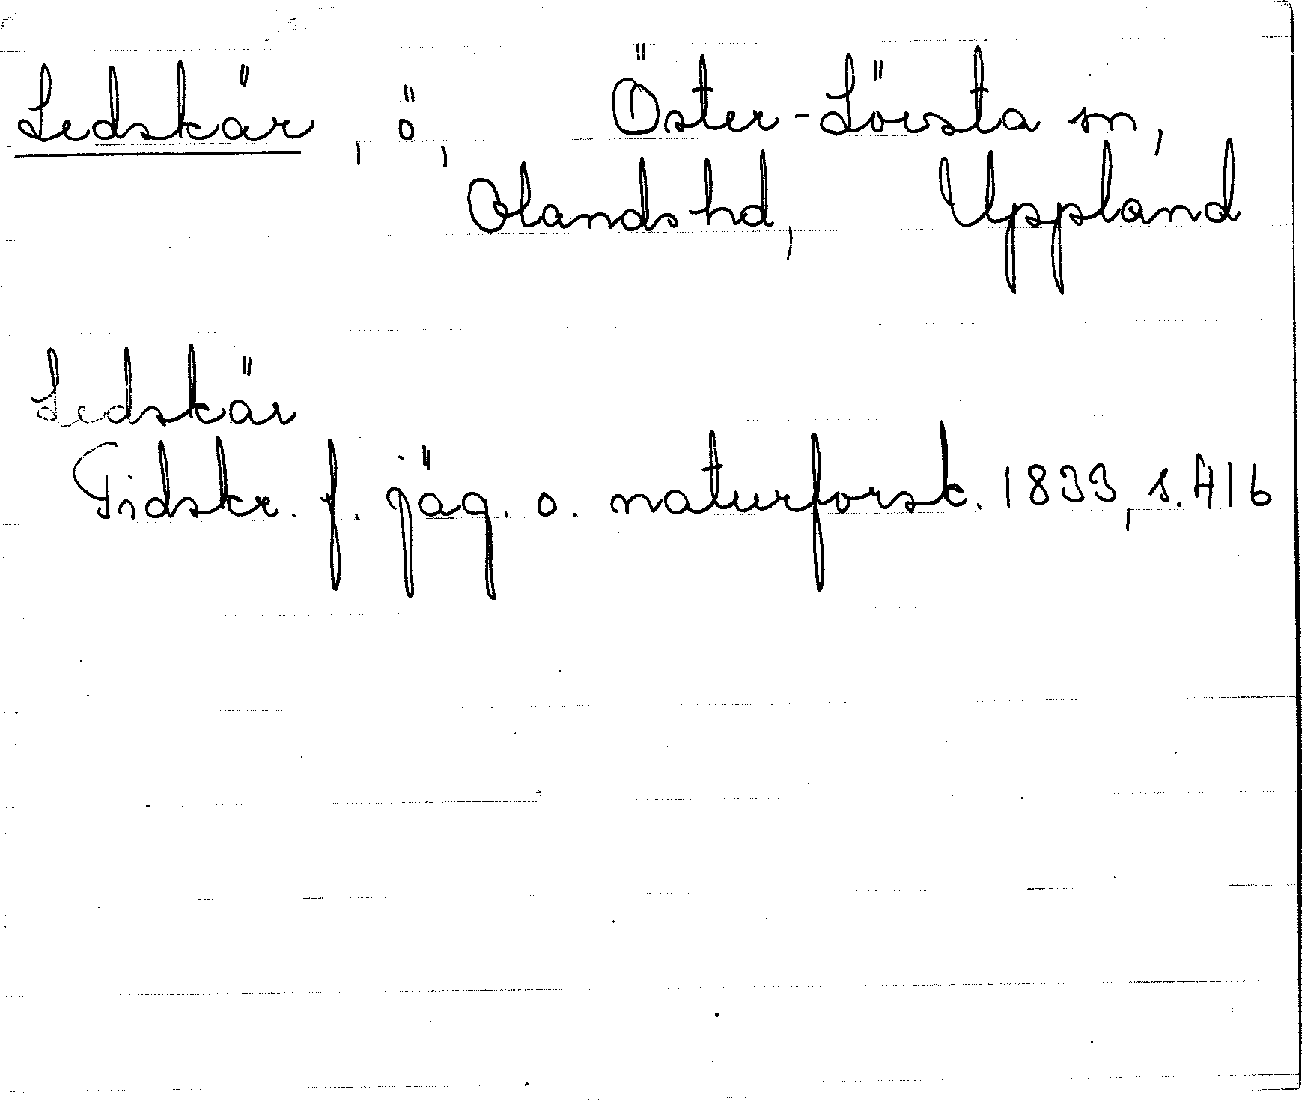 Ledskär, ö, Öster-Lövsta sn,
Olands hd, Uppland
Ledskär
Tidskr. f. jäg. o. naturforsk. 1833, s. 416